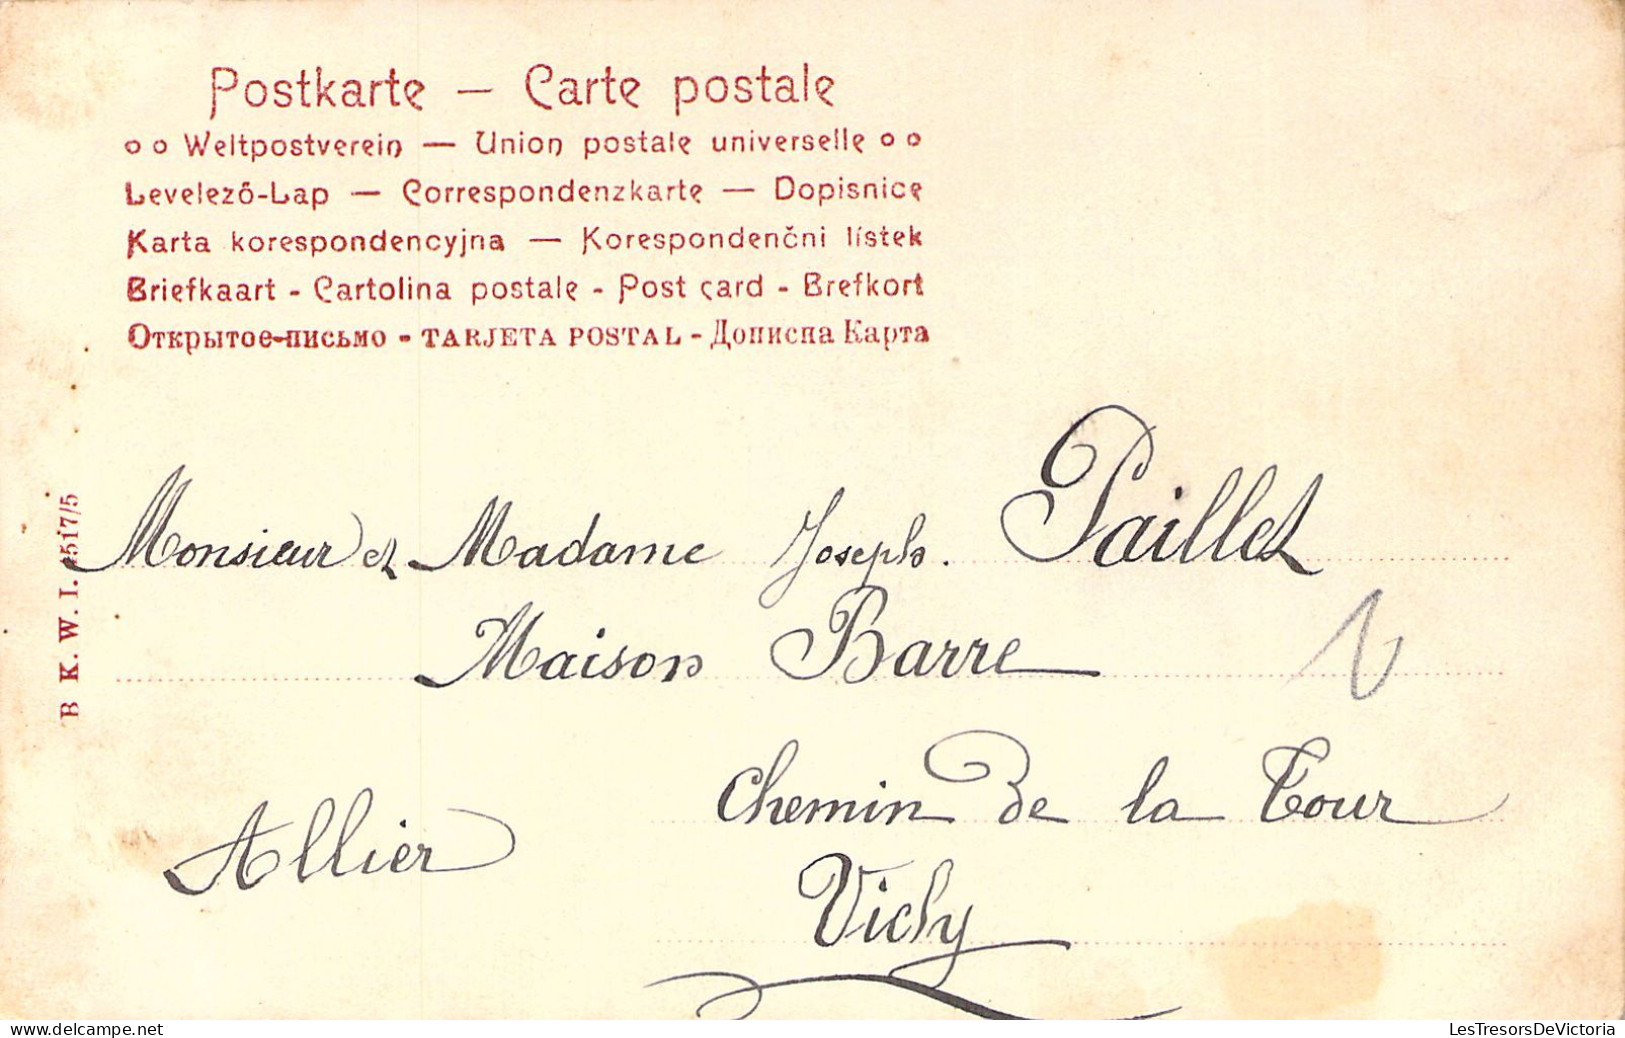 Postkarte — Carte postale
o o Weltpostverein — Union postale universelle o o
Levelező-Lap — Correspondenzkarte — Dopisnice
Karta korespondencyjna — Korespondenčni lístek
Briefkaart - Cartolina postale - Post card - Brefkort
Открытое-письмо - TARJETA POSTAL - Дописна Карта
B K. W. I. 517/5
Monsieur et Madame Joseph. Paillet
Maison Barre
Chemin De la Tour
Allier
Vichy
delcampe.net
LesTresorsDeVictoria